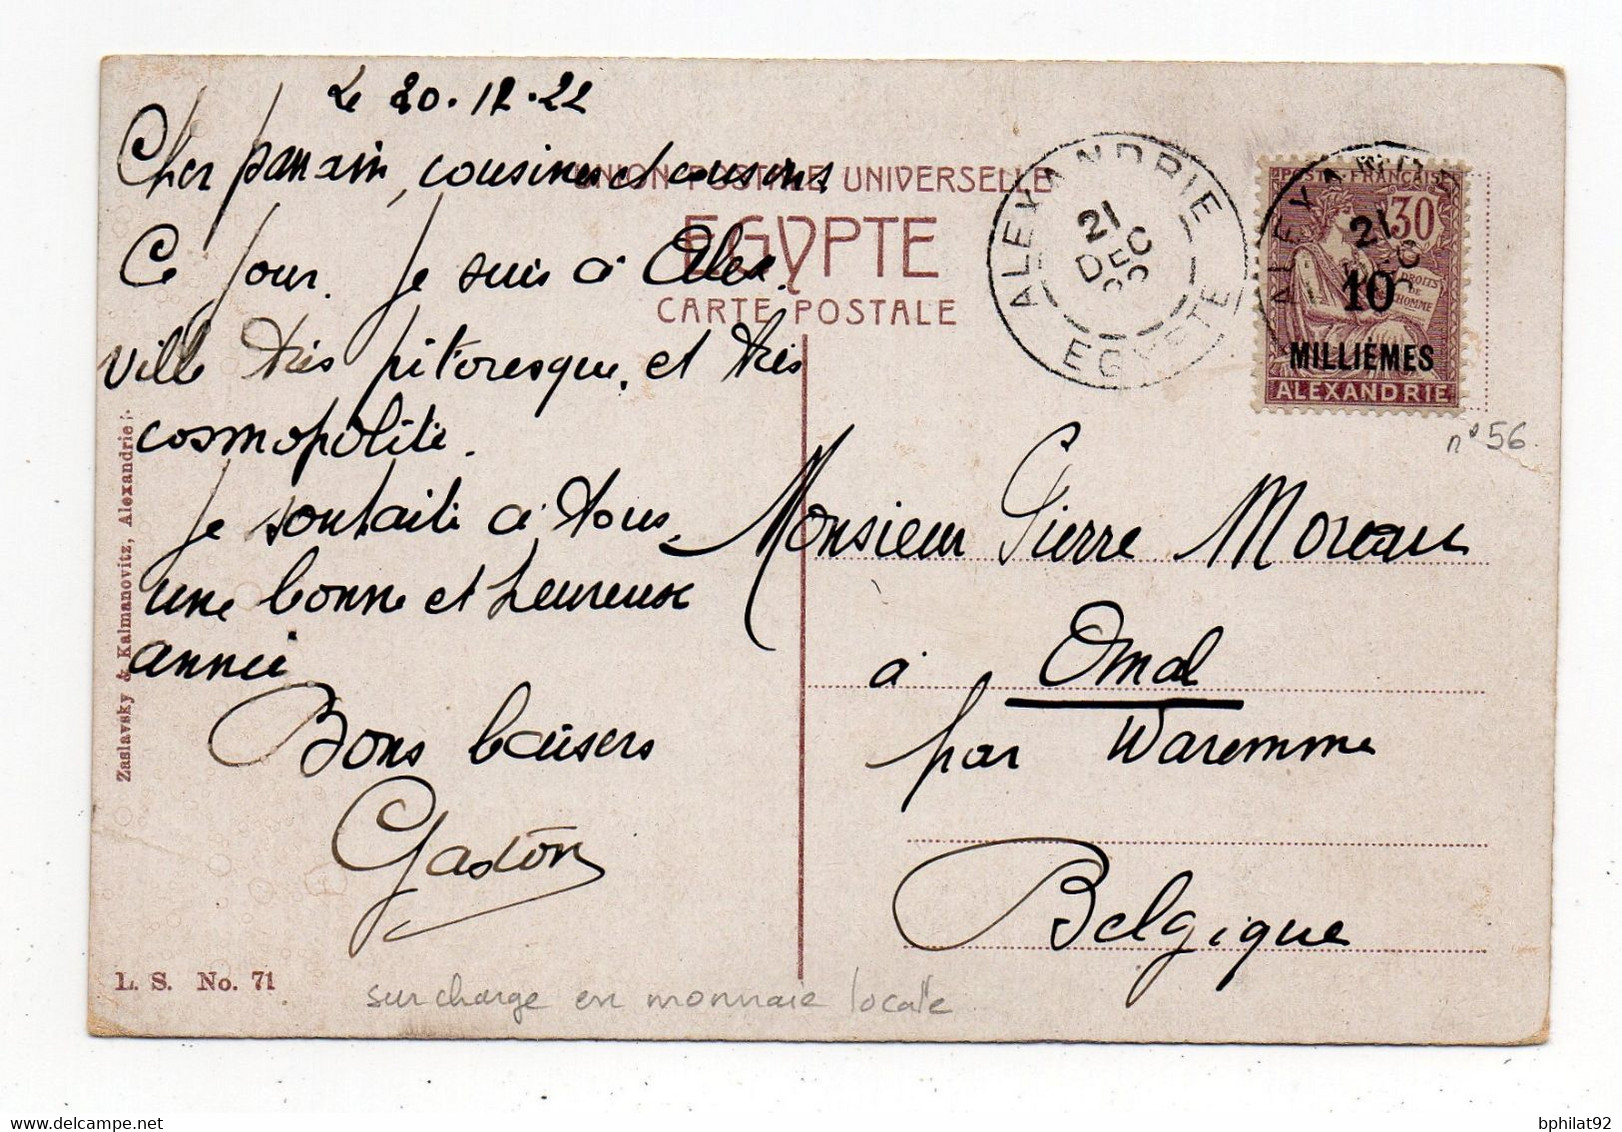 Le 20.12.22
Cher parrain, cousines et cousins
Ce jour. je suis à Alex.
ville très pitoresque, et très
cosmopolite.
Je souhaite à tous
une bonne et heureuse
année
Bons baisers
Gaston
UNION POSTALE UNIVERSELLE
EGYPTE
CARTE POSTALE
ALEXANDRIE
21
DEC
22
EGYPTE
ALEXANDRIE
21
DEC
POSTE FRANÇAISE
30
DROITS
DE
L'HOMME
10
MILLIÈMES
ALEXANDRIE
n° 56.
Monsieur Pierre Moreau
à Omal
par Waremme
Belgique
Zaslavsky & Kalmanovitz, Alexandrie.
L. S. No. 71
surcharge en monnaie locale
delcampe.net
bphilat92